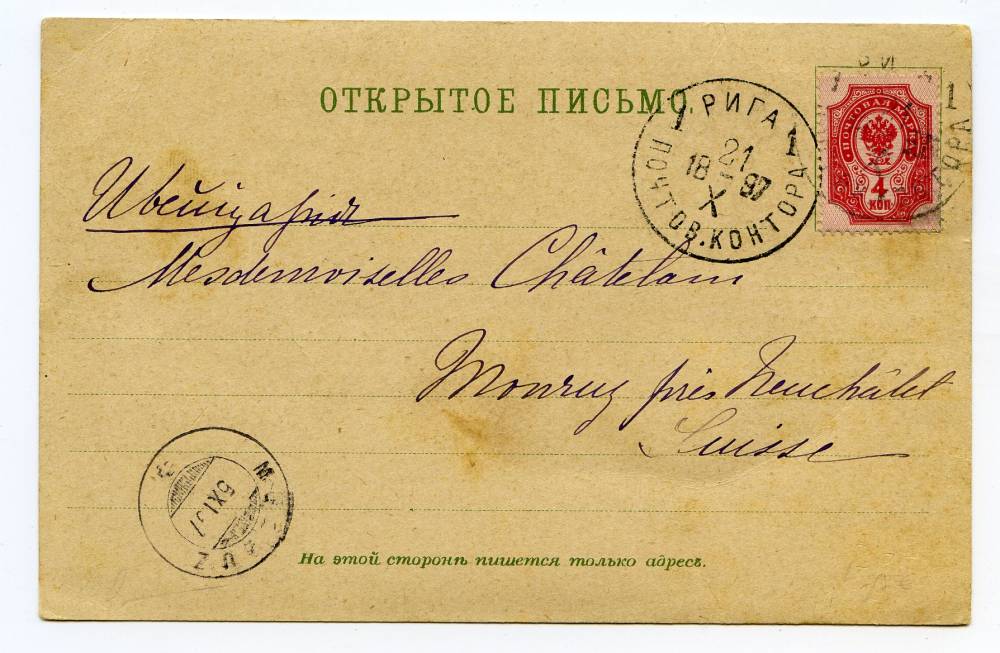 ОТКРЫТОЕ ПИСЬМО.
РИГА
1 1
21
18 97
X
ПОЧТОВ. КОНТОРА
ПОЧТОВАЯ МАРКА
4
КОП.
Швейцарія
Mesdemoiselles Châtelain
Monruz près Neuchâtel
Suisse
На этой сторонѣ пишется только адресъ.